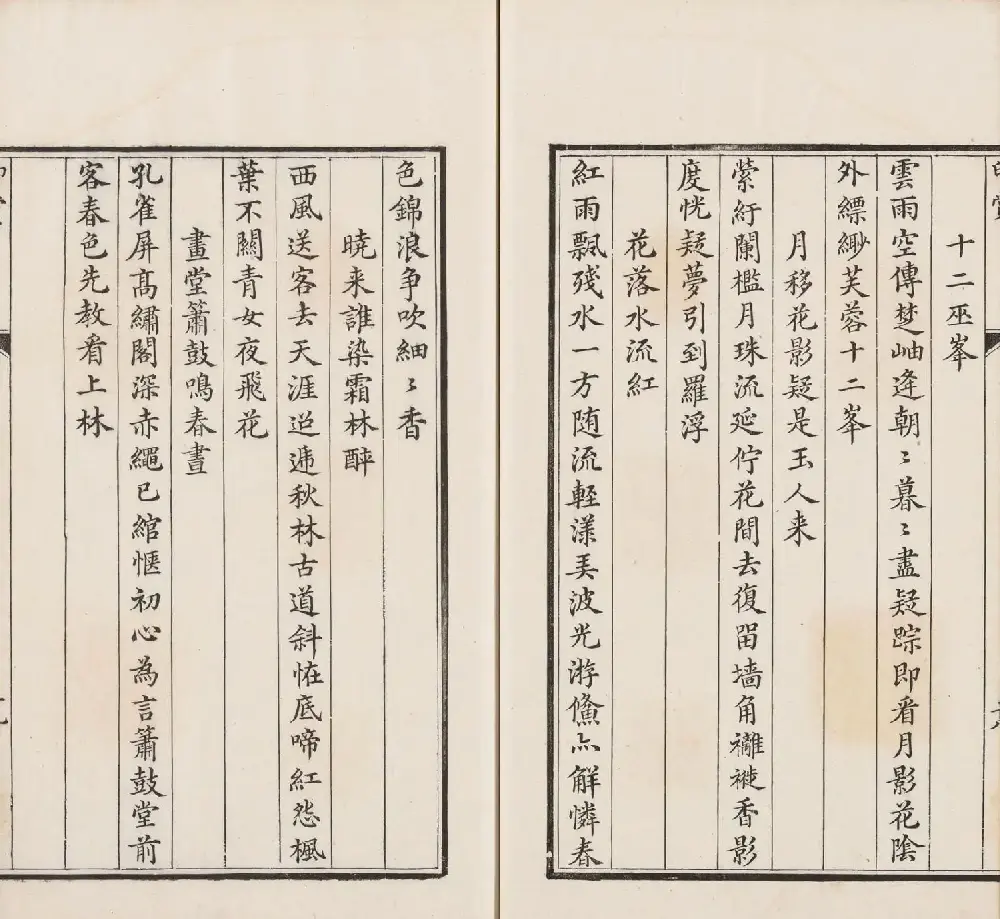 十二巫峯
雲雨空傳楚岫逢朝〻暮〻盡疑踪即看月影花陰
外縹緲芙蓉十二峯
月移花影疑是玉人来
縈紆闌檻月珠流延佇花間去復畱墻角䙰褷香影
度恍疑夢引到羅浮
花落水流紅
紅雨飄殘水一方随流輕漾美波光游鯈亦解憐春
色錦浪争吹細〻香
曉来誰染霜林醉
西風送客去天涯迢遞秋林古道斜恠底啼紅怨楓
葉不關青女夜飛花
畫堂簫鼓鳴春晝
孔雀屏髙繡閣深赤繩已綰愜初心為言簫鼓堂前
客春色先教看上林